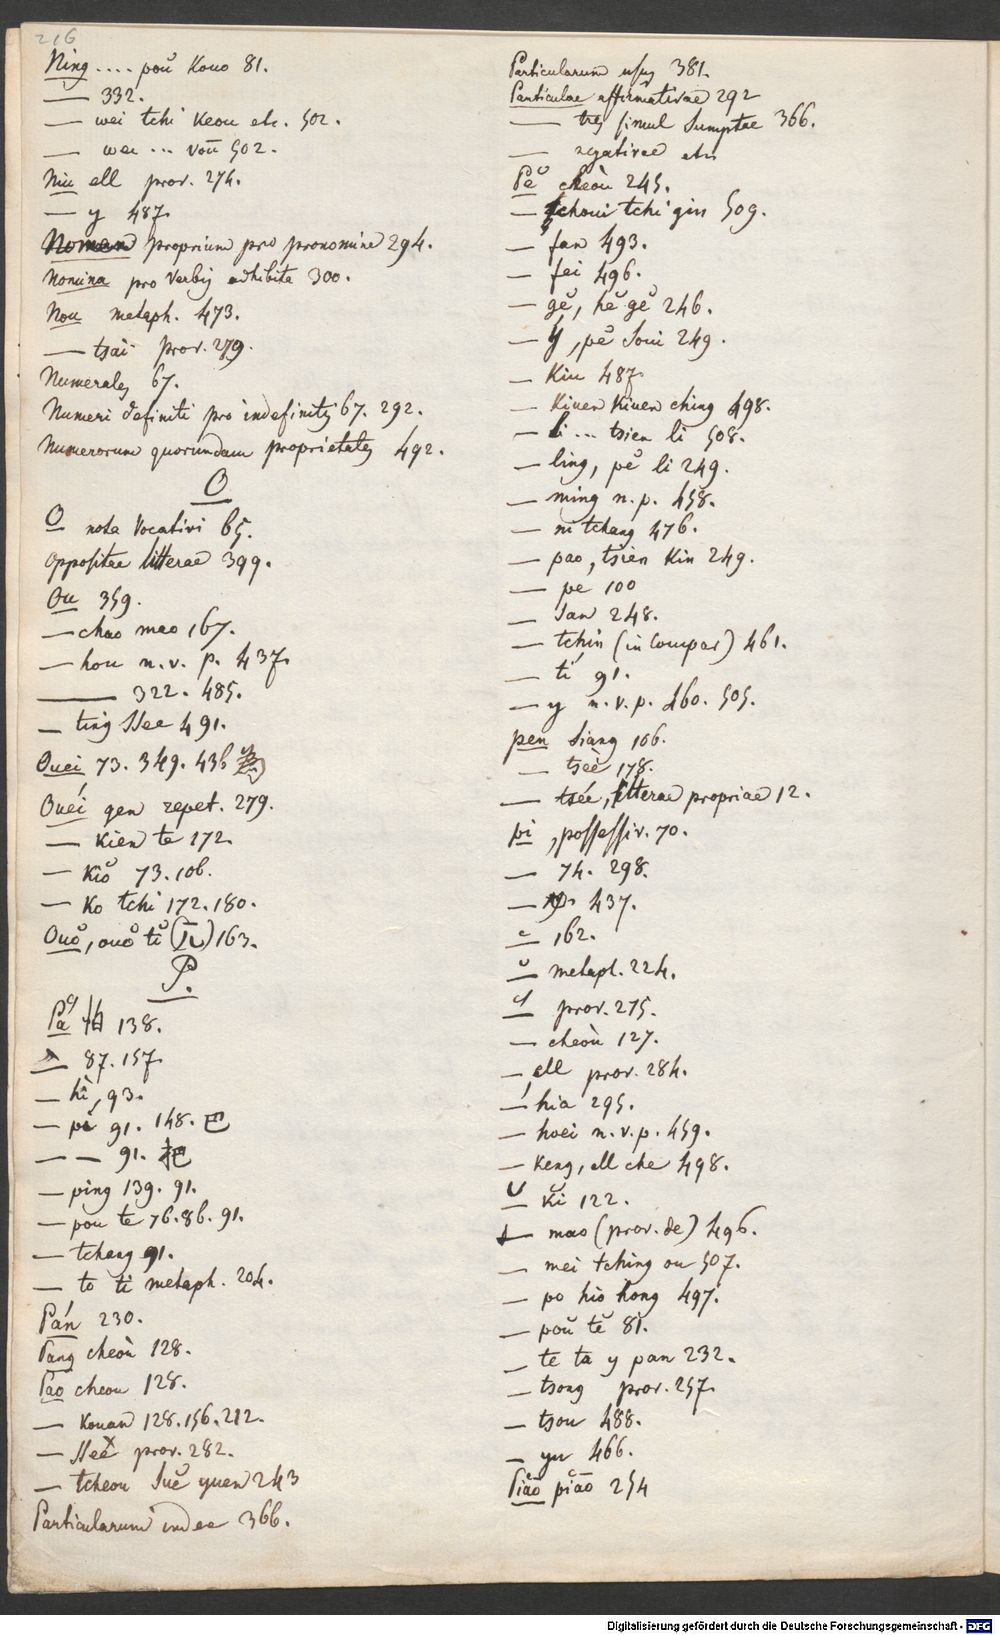 216
Ning .... poŭ Kouo 81.
— 332.
— wei tchi Keou etc. 502.
— wei ... voū 502.
Niu ell prov. 274.
— y 487.
Nomen proprium pro pronomine 294.
Nomina pro verbis adhibita 300.
Nou metaph. 473.
— tsai prov. 279.
Numerales 67.
Numeri definiti pro indefinitis 67. 292.
Numerorum quorumdam proprietates 492.
O
O nota Vocativi 65.
Oppositae litterae 399.
Ou 359.
— chao mao 167.
— hou n. v. p. 437.
— 322. 485.
— ting ssee 491.
Ouei 73. 349. 436
Ouéi gen repet. 279.
— Kien te 172.
— Kiŏ 73. 106.
— Ko tchi 172. 180.
Ouŏ, ouŏ tŭ 163.
P.
Pà 138.
— 87. 157.
— hî, 93.
— pí 91. 148. 巴
— — 91. 把
— ping 139. 91.
— pou te 76. 86. 91.
— tchang 91.
— to ti metaph. 204.
Pán 230.
Pang cheoù 128.
Pao cheou 128.
— Kouan 128. 156. 212.
— ssee prov. 282.
— tcheou Suĕ yuen 243
Particularum index 366.
Particularum usus 381.
Particulae affirmativae 292
— tres simul Sumptae 366.
— negativae etc.
Pĕ cheoù 245.
— tchoui tchi gin 509.
— fan 493.
— fei 496.
— gĕ, hĕ gĕ 246.
— ý, pĕ Soui 249.
— Kiu 487.
— Kiuen Kiuen ching 498.
— li ... tsien li 508.
— ling, pĕ li 249.
— ming n. p. 458.
— ni tchang 476.
— pao, tsien Kin 249.
— pe 100
— San 248.
— tchin (in Compar) 461.
— tí 91.
— y n. v. p. 460. 505.
Pen Siang 106.
— tseè 178.
— tsée, litterae propriae 12.
Pi, possessiv. 70.
— 74. 298.
— 437.
— 162.
— metaph. 224.
— prov. 275.
— cheoù 127.
— ell prov. 284.
— hia 295.
— hoei n. v. p. 459.
— Keng, ell che 498.
— Kĭ 122.
— mao (prov. de) 496.
— mei tching ou 507.
— po hio hong 497.
— poŭ tĕ 81.
— te ta y pan 232.
— tsong prov. 257.
— tsou 488.
— yu 466.
Piăo piăo 254
Digitalisierung gefördert durch die Deutsche Forschungsgemeinschaft - DFG